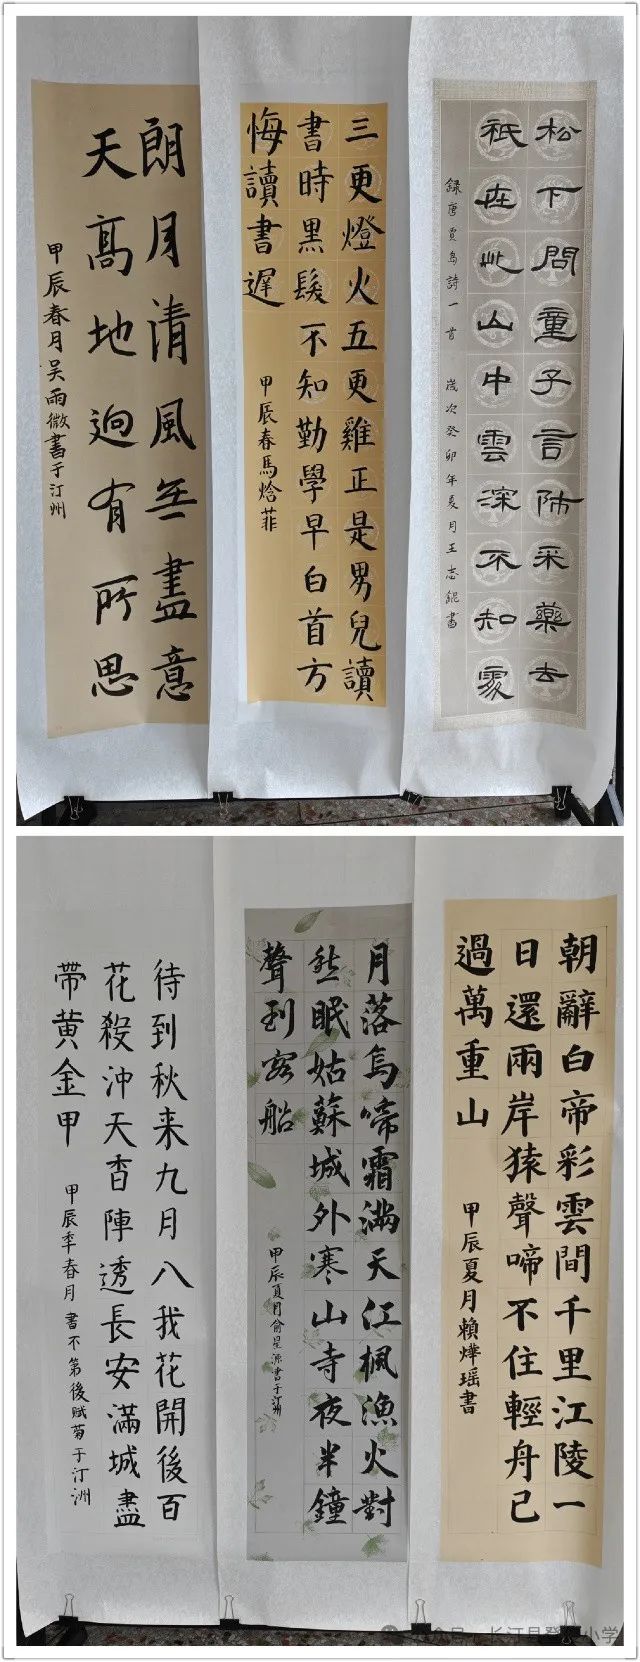 松下問童子言師采藥去
祇在此山中雲深不知處
録唐賈島詩一首 歲次癸卯年夏月王志錕書
三更燈火五更雞正是男兒讀
書時黑髮不知勤學早白首方
悔讀書遲
甲辰春馬焓菲
朗月清風無盡意
天髙地迥有所思
甲辰春月吴雨微書于汀州
朝辭白帝彩雲間千里江陵一
日還兩岸猿聲啼不住輕舟已
過萬重山
甲辰夏月賴燁瑶書
月落烏啼霜滿天江楓漁火對
愁眠姑蘇城外寒山寺夜半鐘
聲到客船
甲辰夏月俞星源書于汀洲
待到秋来九月八我花開後百
花殺沖天香陣透長安滿城盡
帶黄金甲
甲辰季春月 書不第後賦菊于汀洲
长汀县 小学